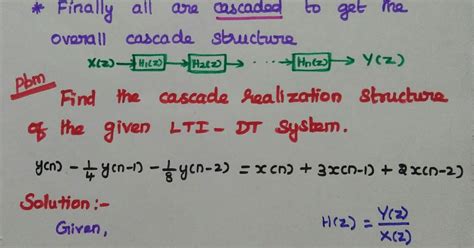 * Finally all are cascaded to get the
overall cascade structure
X(z) → H₁(z) → H₂(z) → · · · → Hn(z) → Y(z)
Pbm
Find the cascade realization structure
of the given LTI - DT System.
y(n) - 1/4 y(n-1) - 1/8 y(n-2) = x(n) + 3x(n-1) + 2x(n-2)
Solution :-
Given,
H(z) = Y(z)/X(z)